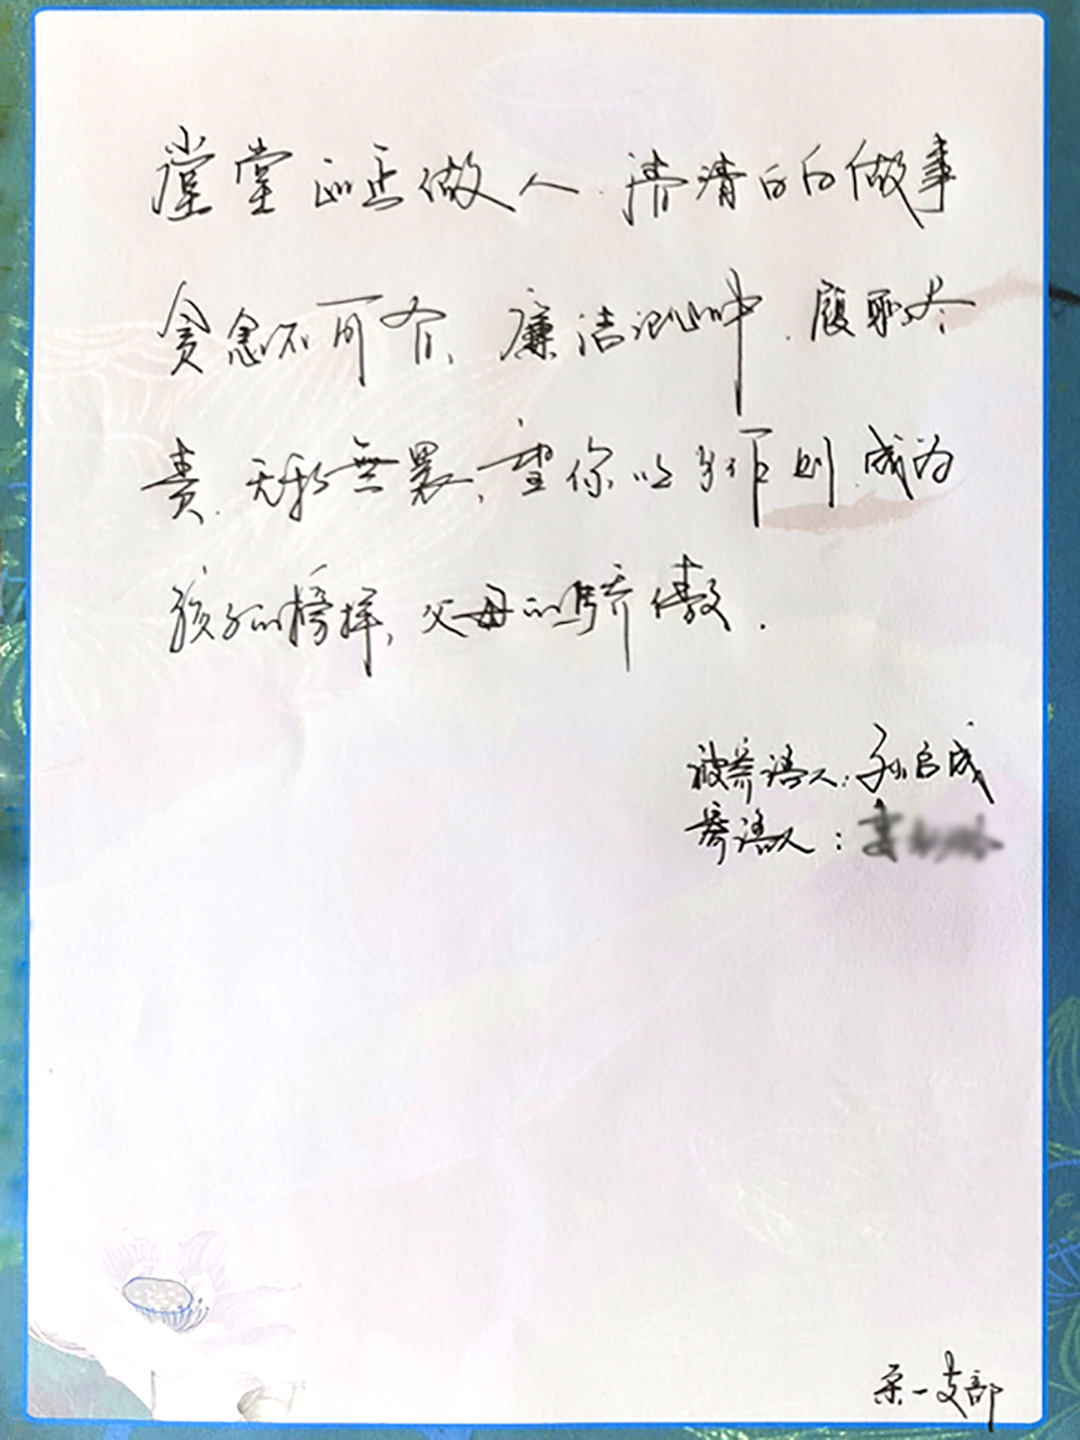 堂堂正正做人.清清白白做事
贪念不可有、廉洁记心中.履职尽
责.无私無畏,望你以身作则.成为
孩子的榜样,父母的骄傲.
被寄语人:孙启成
寄语人:
第一支部